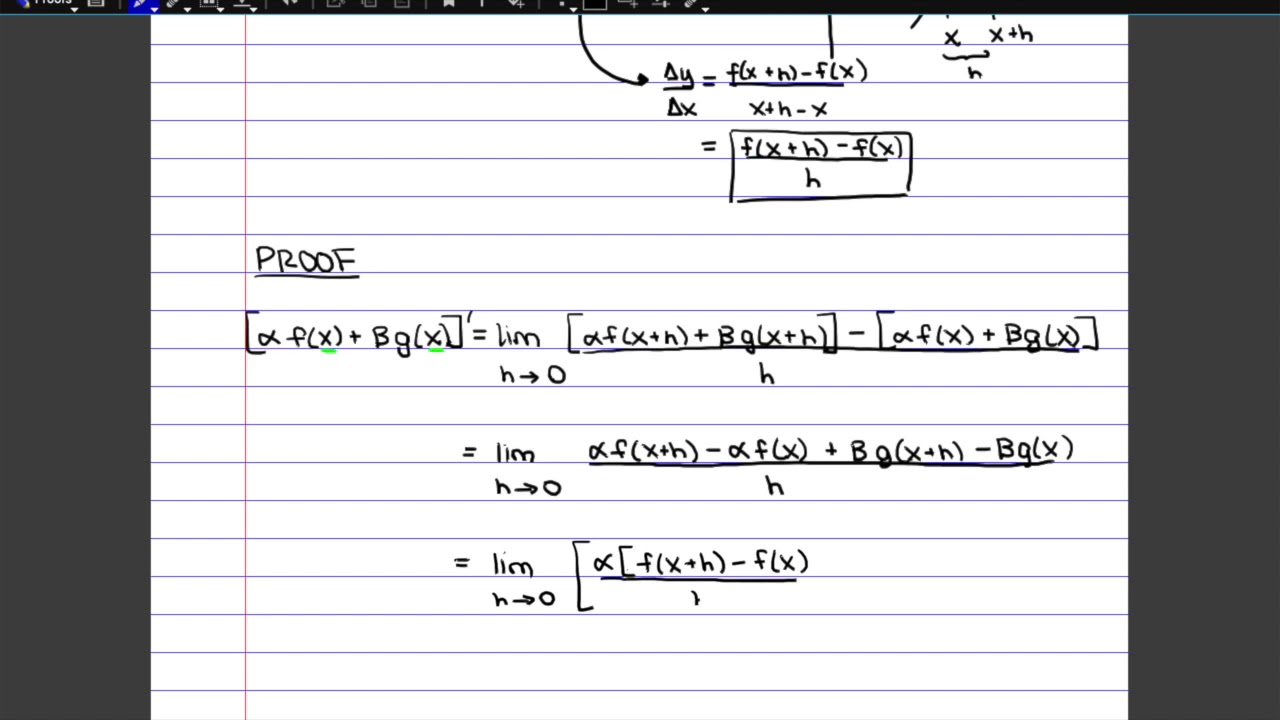 Proofs
x x+h
h
Δy/Δx = f(x+h)-f(x)/x+h-x
= f(x+h)-f(x)/h
PROOF
[αf(x)+Bg(x)]' = lim h→0 [αf(x+h)+Bg(x+h)]-[αf(x)+Bg(x)]/h
= lim h→0 αf(x+h)-αf(x)+Bg(x+h)-Bg(x)/h
= lim h→0 [α[f(x+h)-f(x)